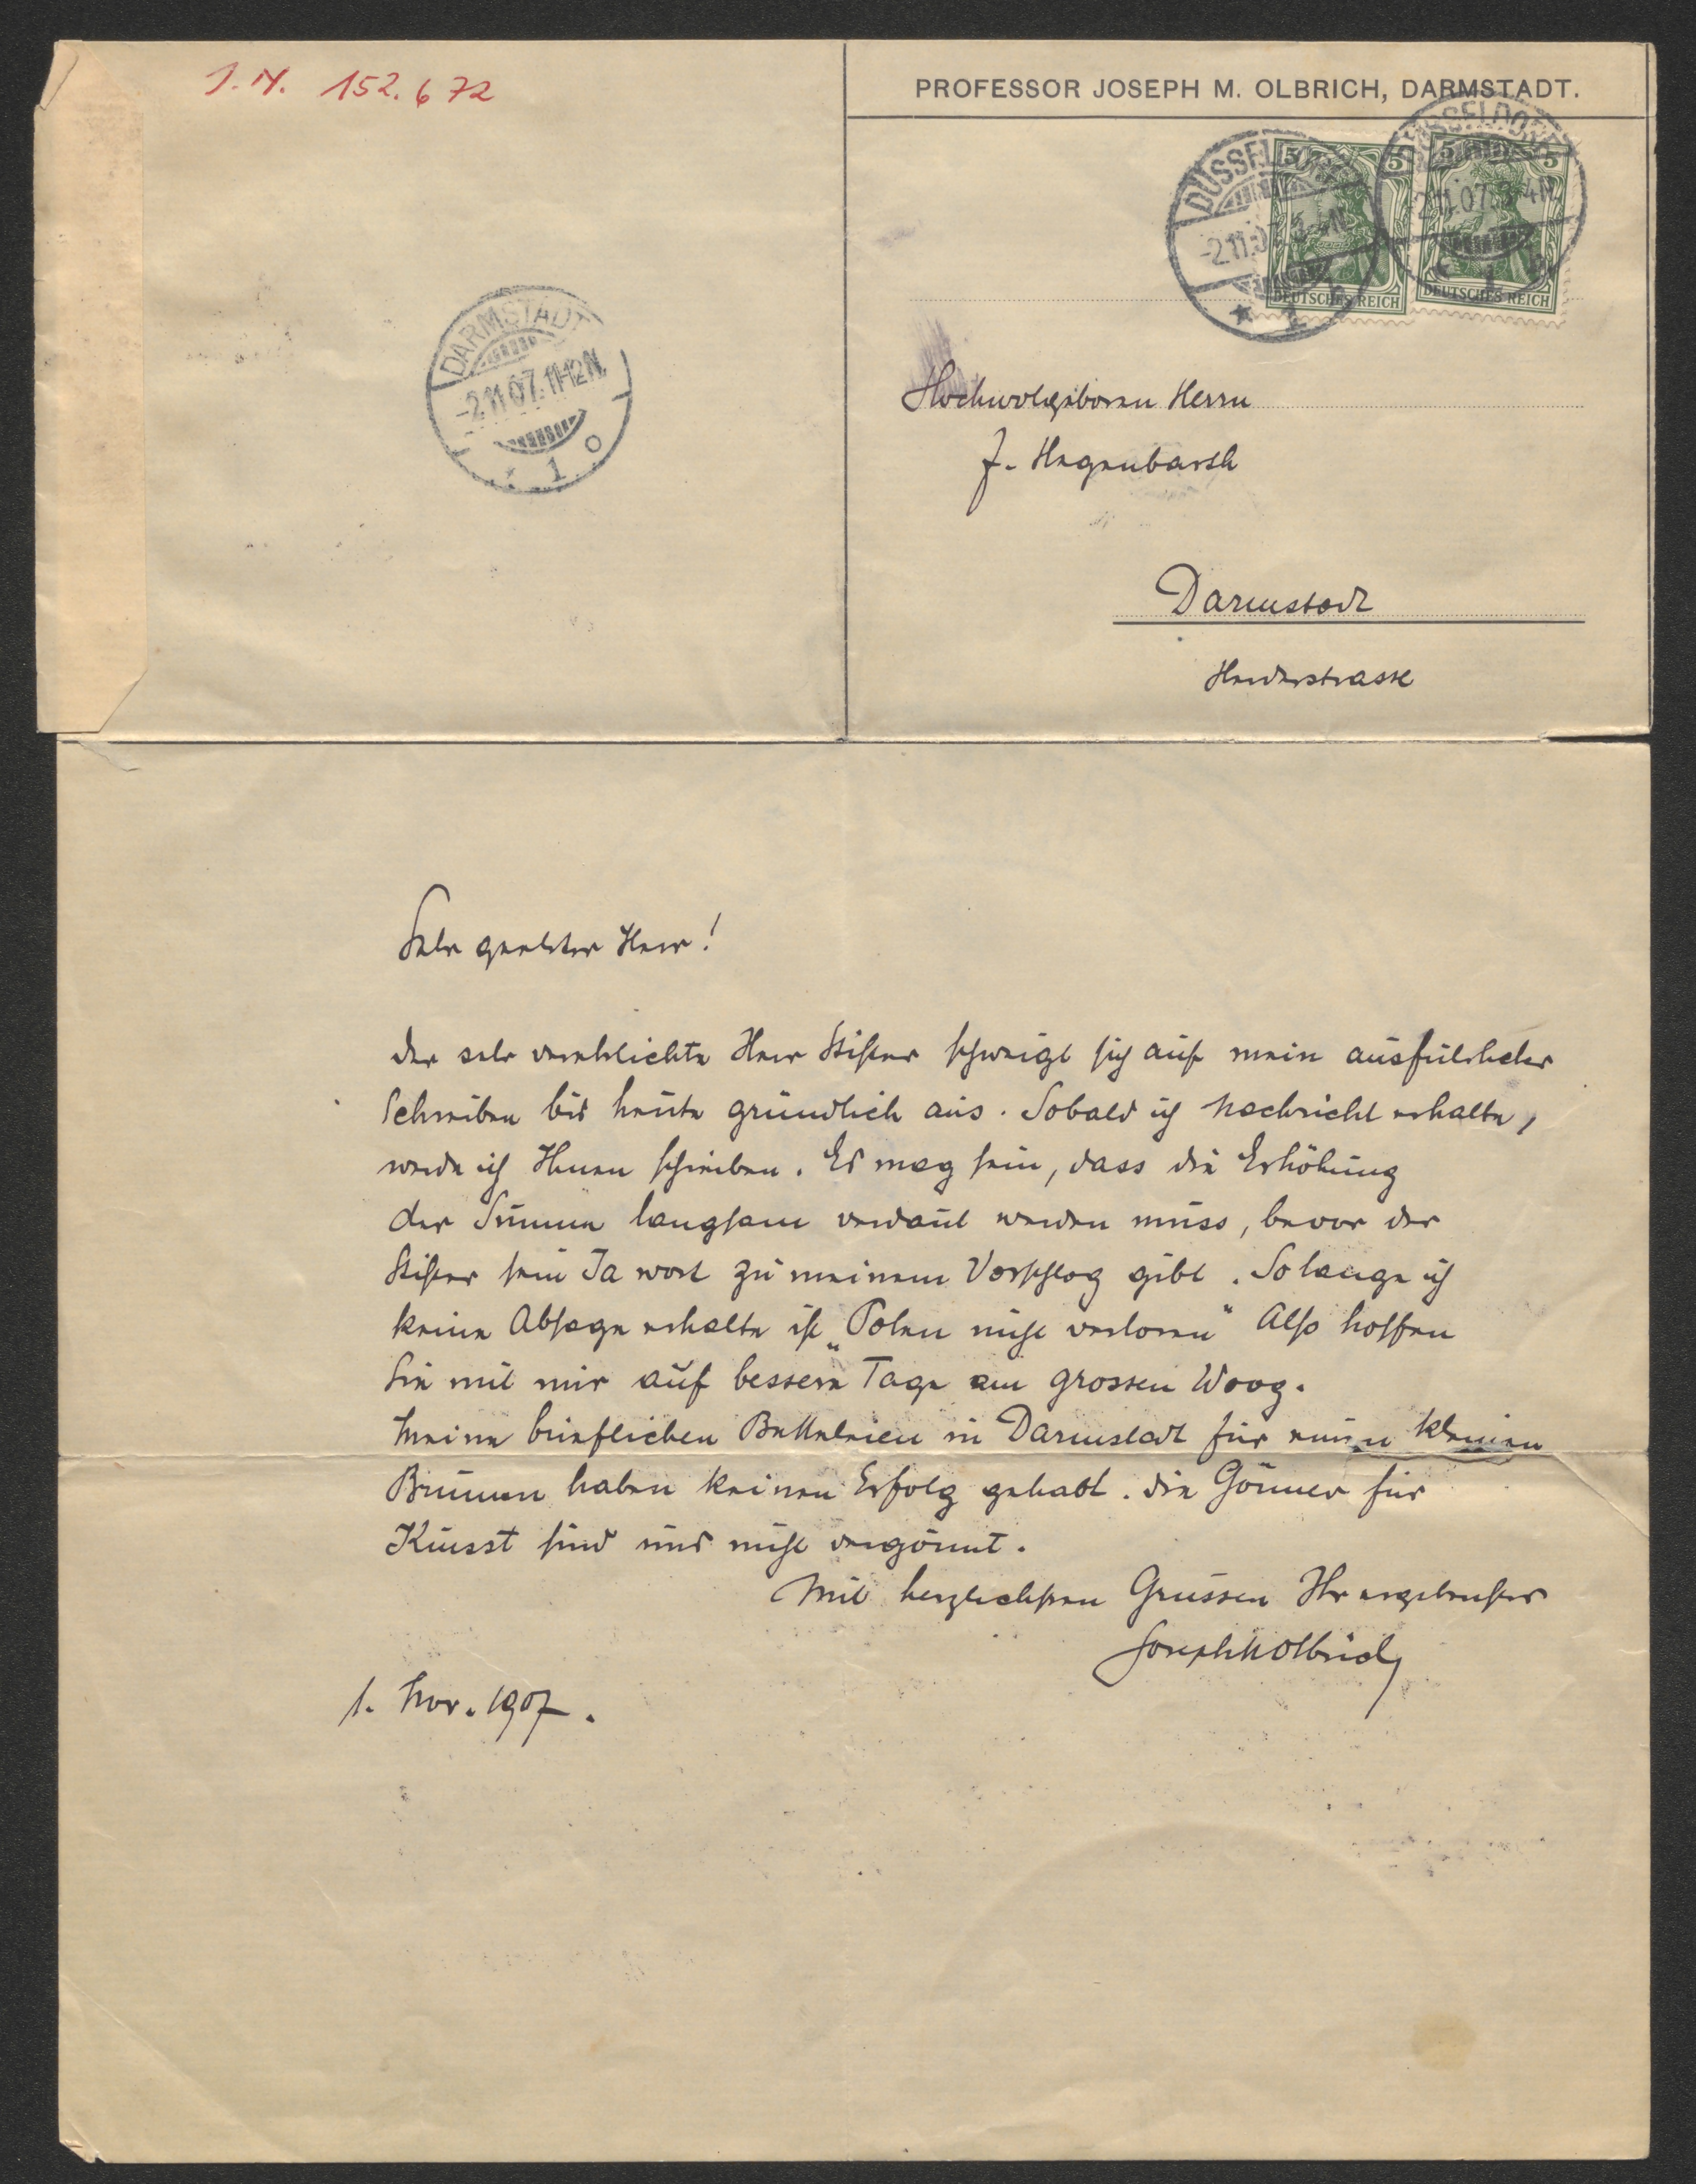 J.N. 152.672
PROFESSOR JOSEPH M. OLBRICH, DARMSTADT.
DÜSSELDORF
-2.11.07
DÜSSELDORF
-2.11.07 3-4N
1
5 5
DEUTSCHES REICH
5 5
DEUTSCHES REICH
DARMSTADT
-2.11.07.11-12N.
* 1 o
Hochwolgeboren Herrn
J. Hegenbarth
Darmstadt
Herderstrasse
Sehr geehrter Herr!
der sehr verehrlichte Herr Stifter schweigt sich auf mein ausfürliches
Schreiben bis heute gründlich aus. Sobald ich Nachricht erhalte,
werde ich Ihnen schreiben. Es mag sein, dass die Erhöhung
der Summe langsam verdaut werden muss, bevor der
Stifter sein Ja wort zu meinem Vorschlag gibt. So lange ich
keine Absage erhalte ist „Polen nicht verloren" Also hoffen
Sie mit mir auf bessere Tage am grossen Woog.
Meine brieflichen Betteleien in Darmstadt für einen kleinen
Brunnen haben keinen Erfolg gehabt. die Gönner für
Kunst sind uns nicht vergönnt.
Mit herzlichsten Grüssen Ihr ergebenster
Joseph M Olbrich
1. Nov. 1907.